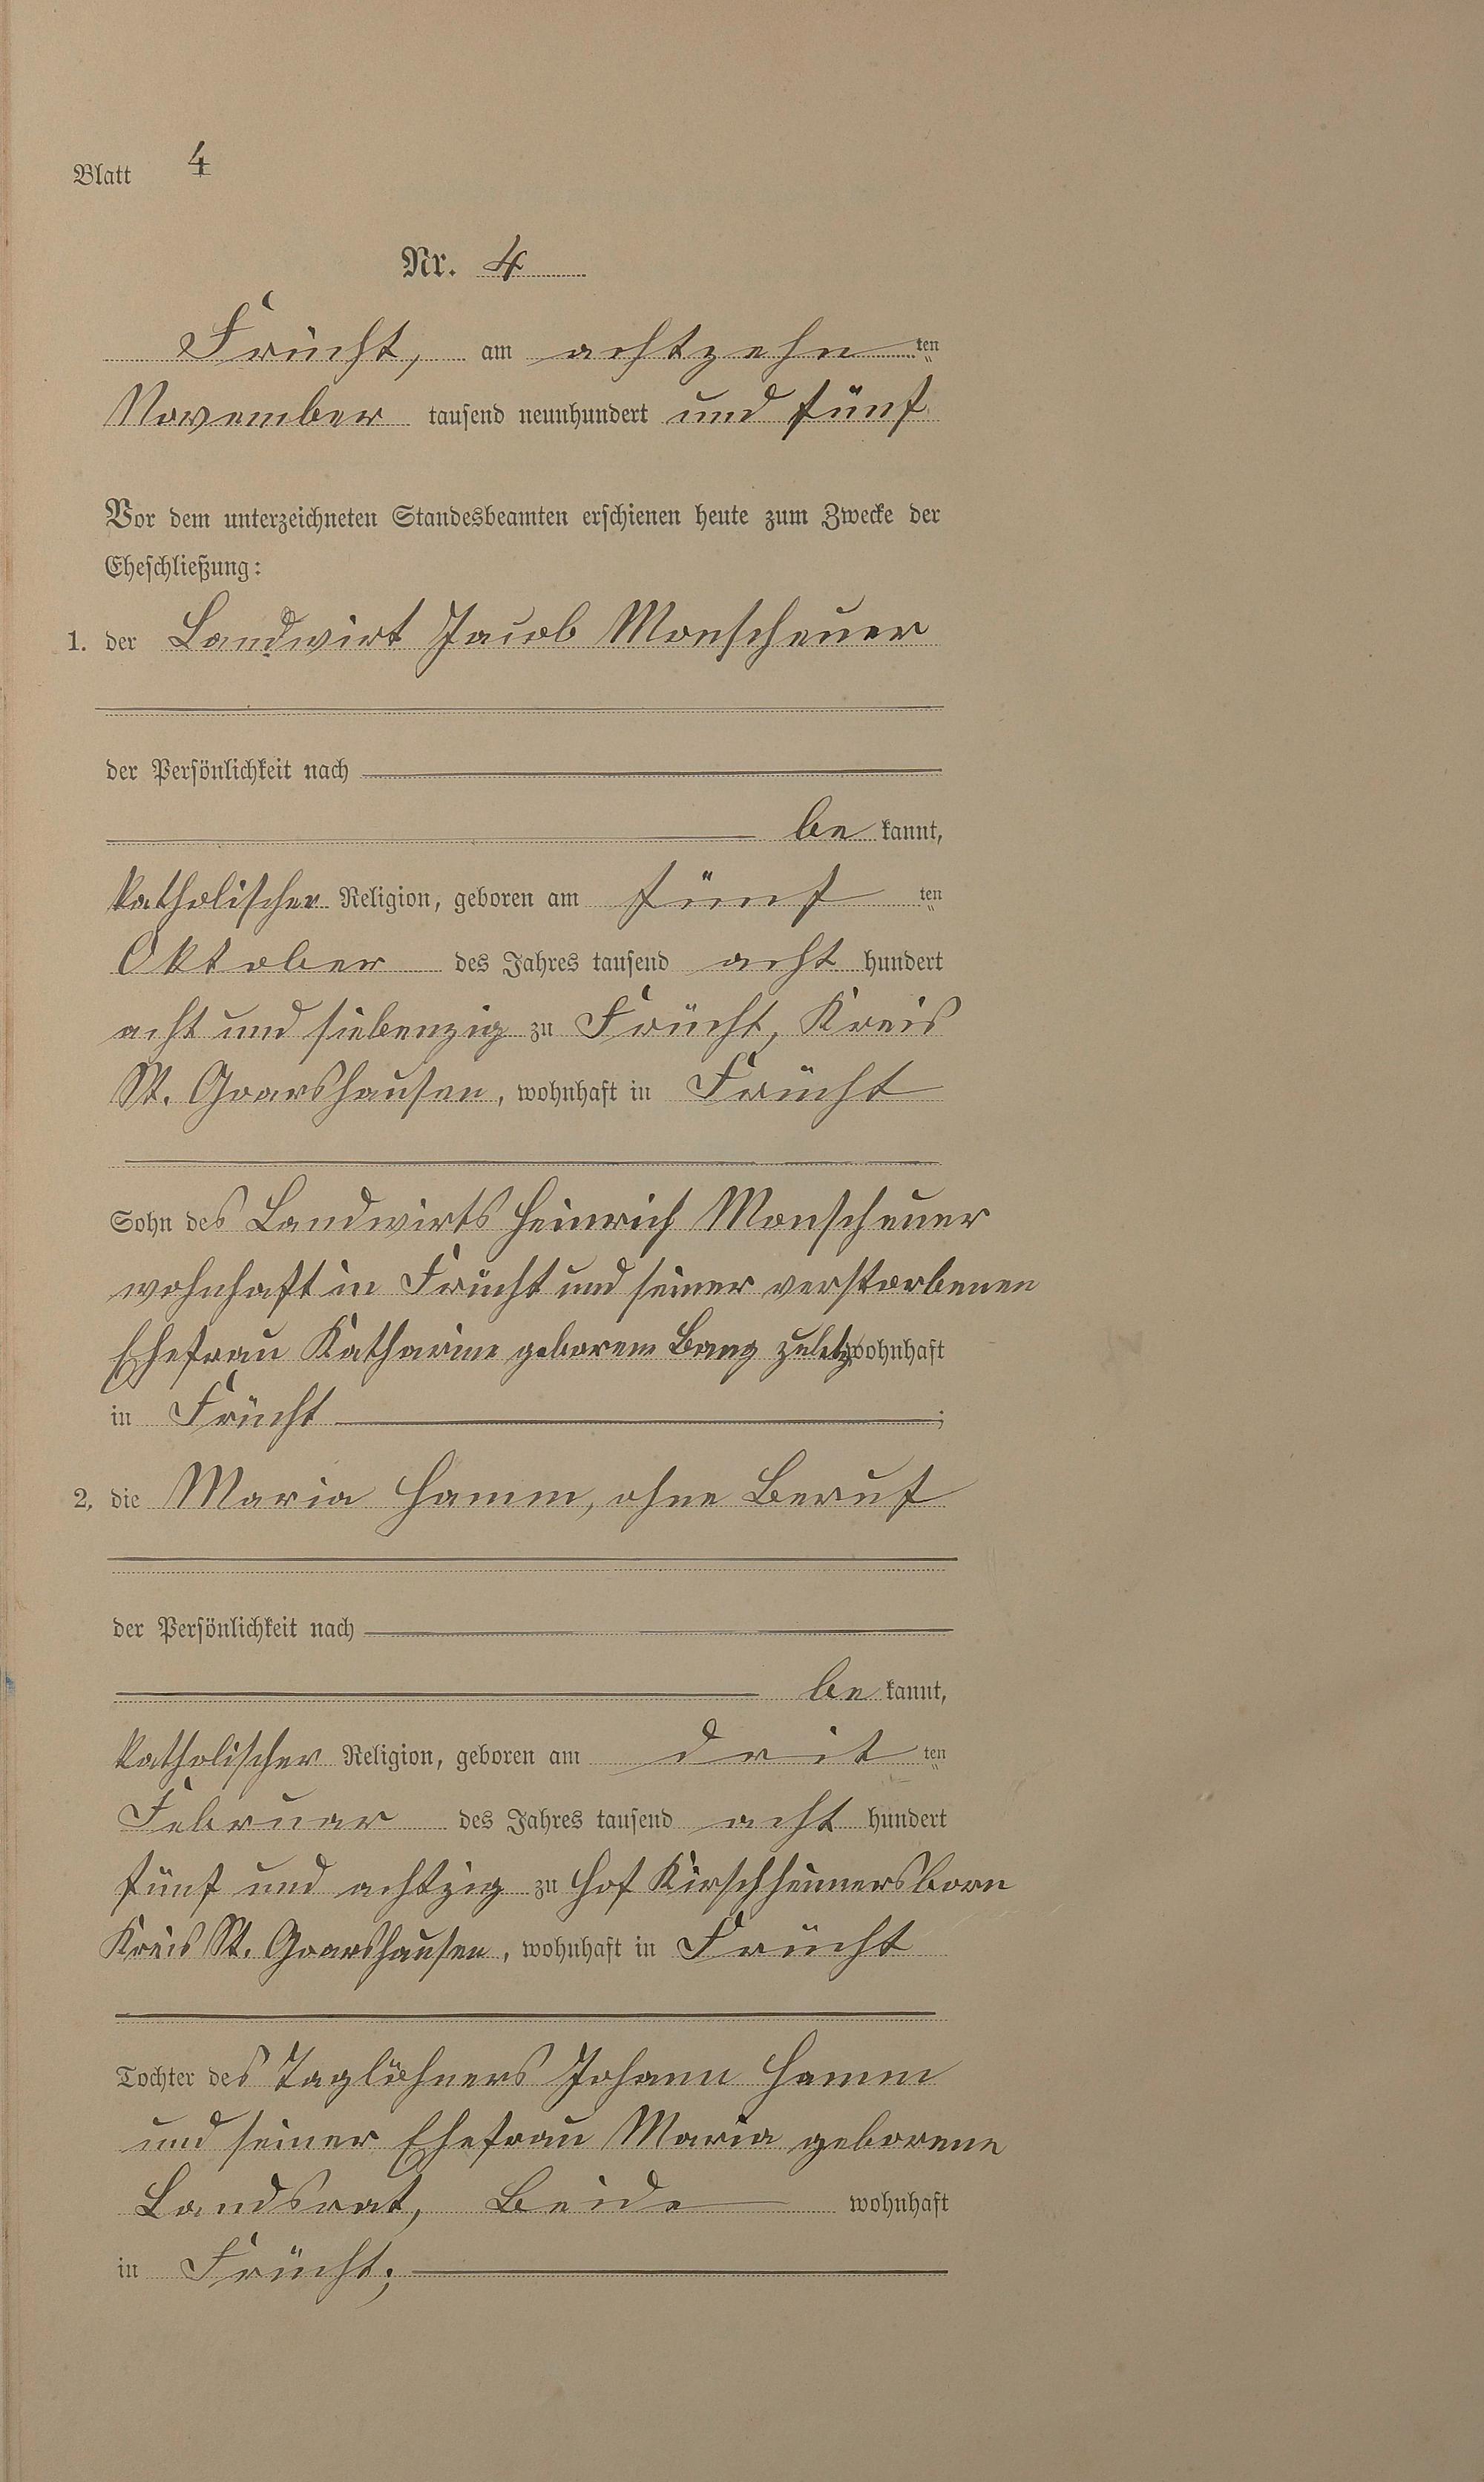 Blatt 4
Nr. 4
Frücht, am achtzehn ten
November tausend neunhundert und fünf
Vor dem unterzeichneten Standesbeamten erschienen heute zum Zwecke der
Eheschließung:
1. der Landwirt Jacob Monscheuer
der Persönlichkeit nach
be kannt,
katholischer Religion, geboren am fünf ten
Oktober des Jahres tausend acht hundert
acht und siebenzig zu Frücht, Kreis
St. Goarshausen, wohnhaft in Frücht
Sohn des Landwirts Heinrich Monscheuer
wohnhaft in Frücht und seiner verstorbenen
Ehefrau Katharine geborene Bang zuletzt wohnhaft
in Frücht ;
2. die Maria Hamm, ohne Beruf
der Persönlichkeit nach
be kannt,
katholischer Religion, geboren am drit ten
Februar des Jahres tausend acht hundert
fünf und achtzig zu Hof Kirschheimersborn
Kreis St. Goarshausen, wohnhaft in Frücht
Tochter des Taglöhners Johann Hamm
und seiner Ehefrau Maria geborene
Landsrat, Beide wohnhaft
in Frücht;